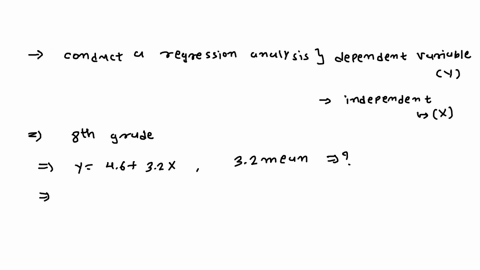 → conduct a regression analysis } dependent variable (Y)
→ independent ↳ (X)
⇒ 8th grade
⇒ Y= 4.6+ 3.2X , 3.2 mean ⇒ ?
⇒